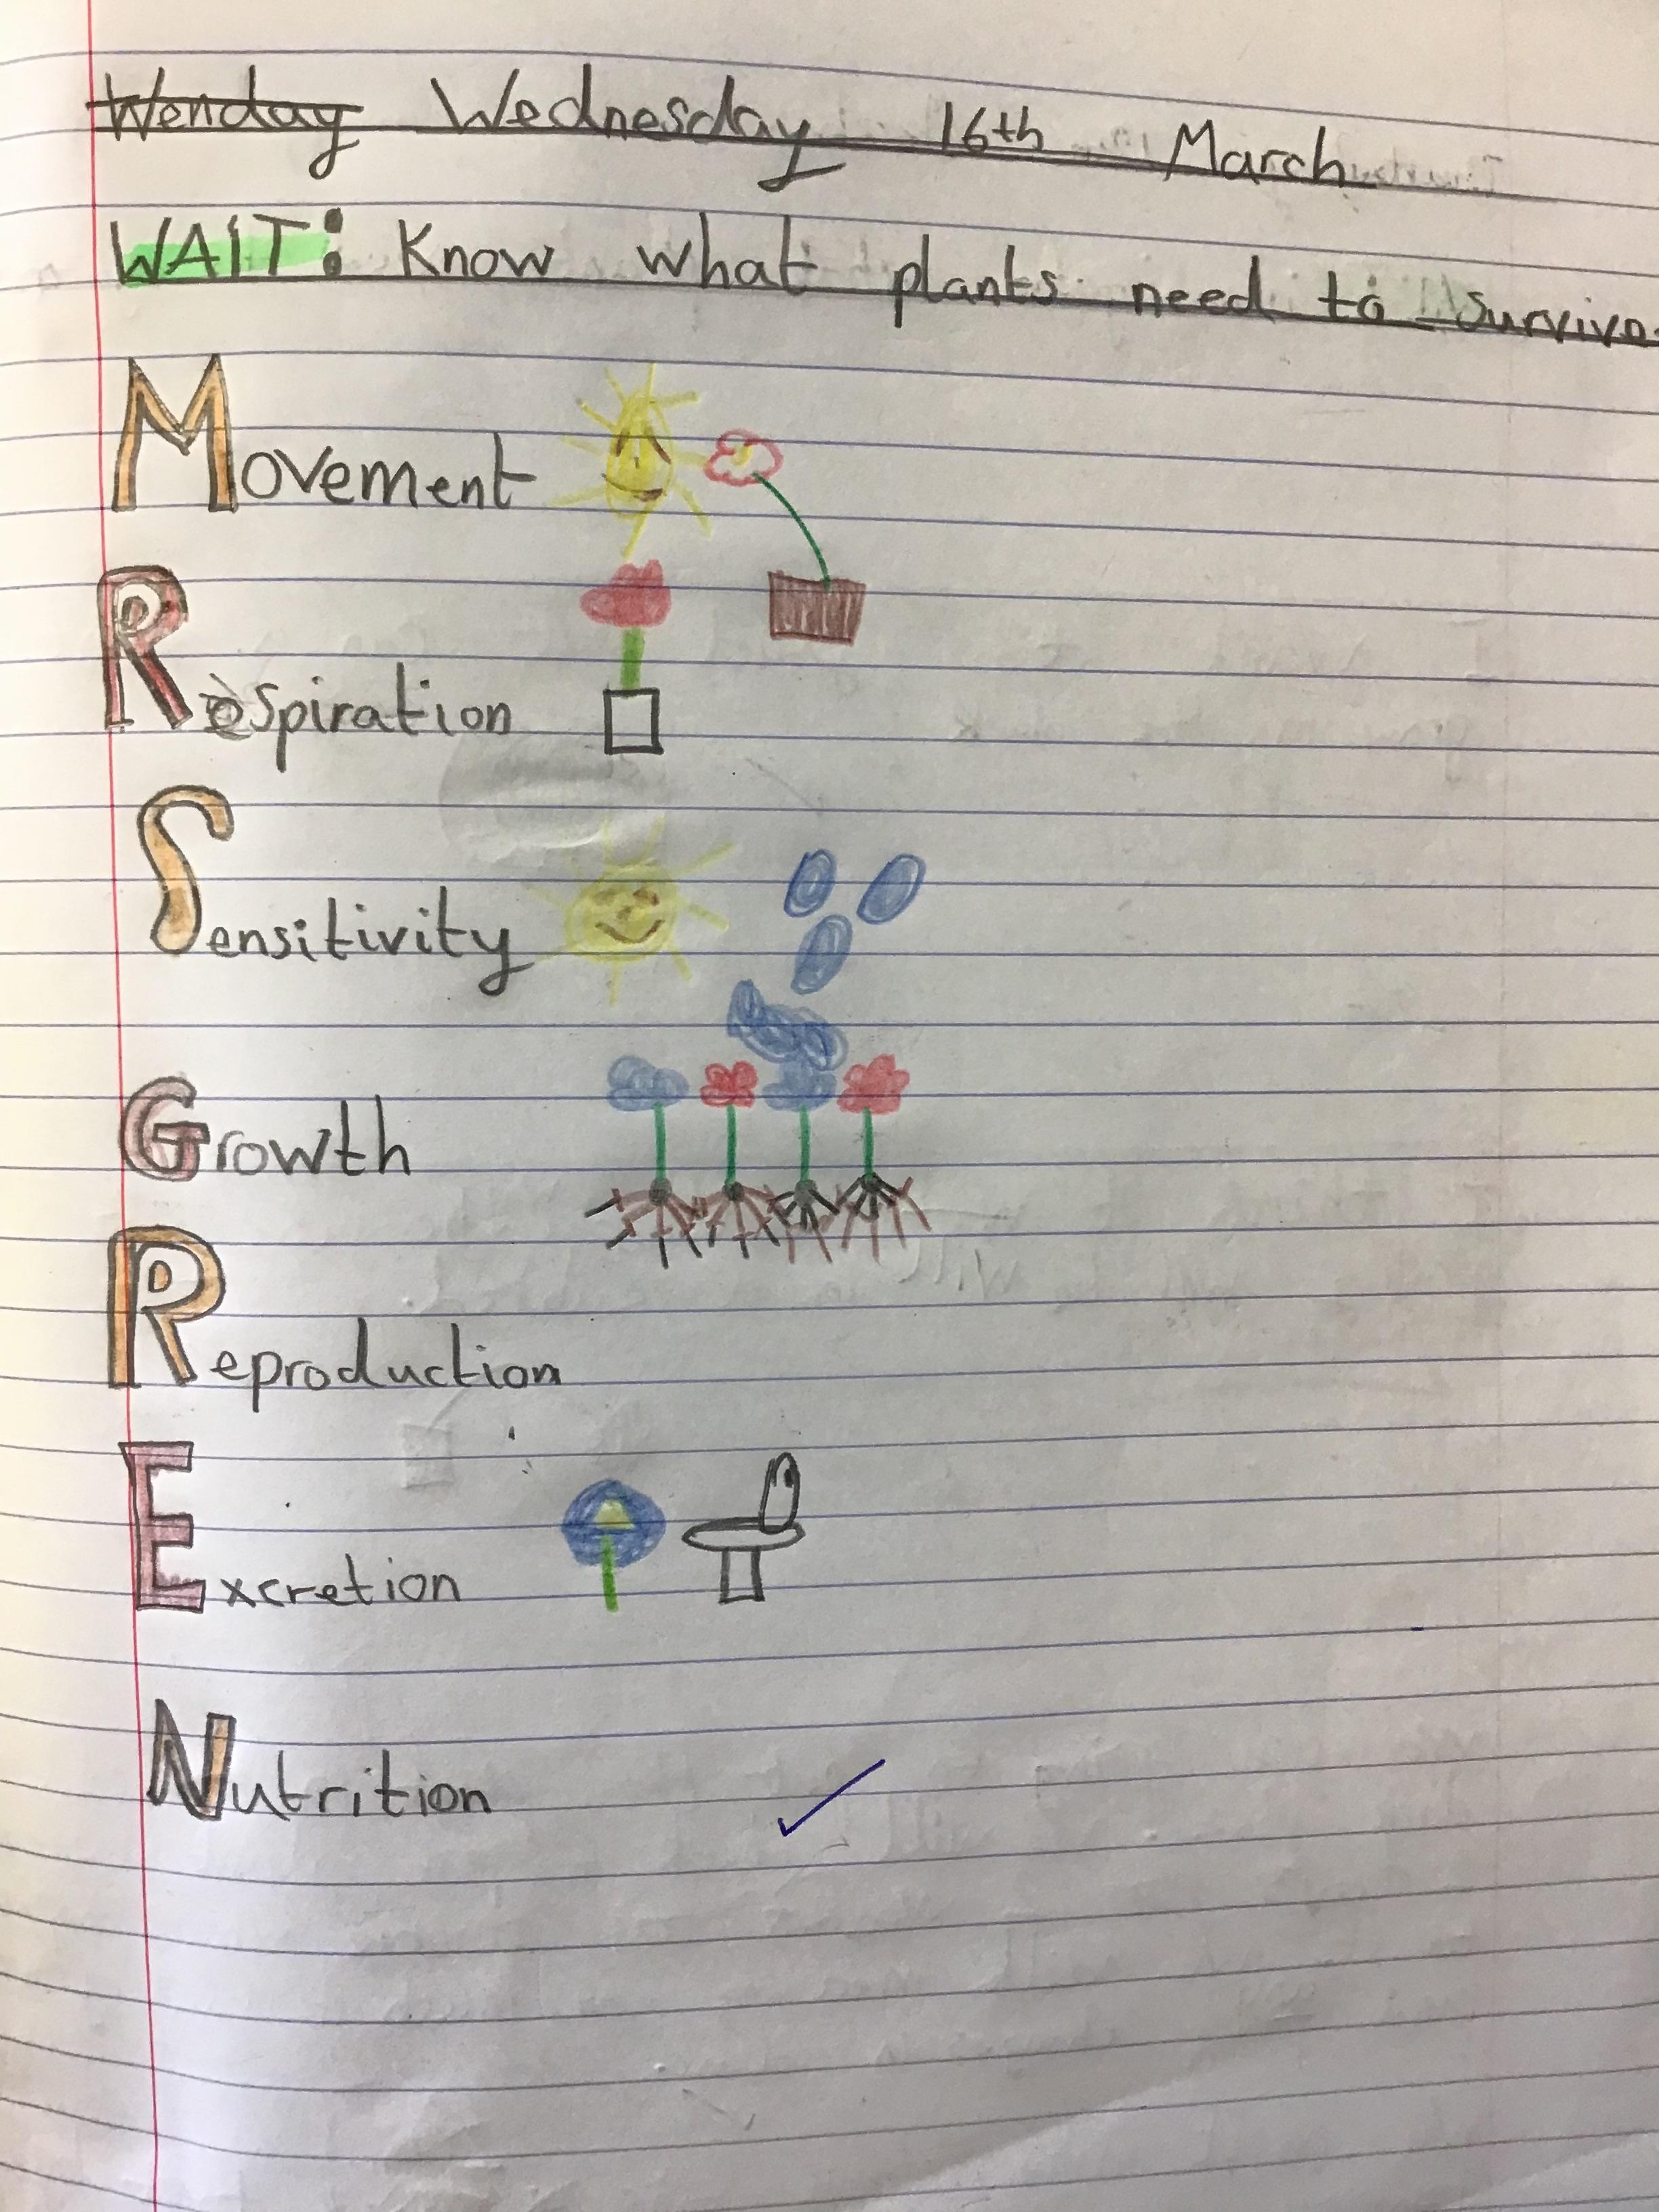 Wenday Wednesday 16th March
WAIT: Know what plants need to survive.
Movement
Respiration
Sensitivity
Growth
Reproduction
Excretion
Nutrition